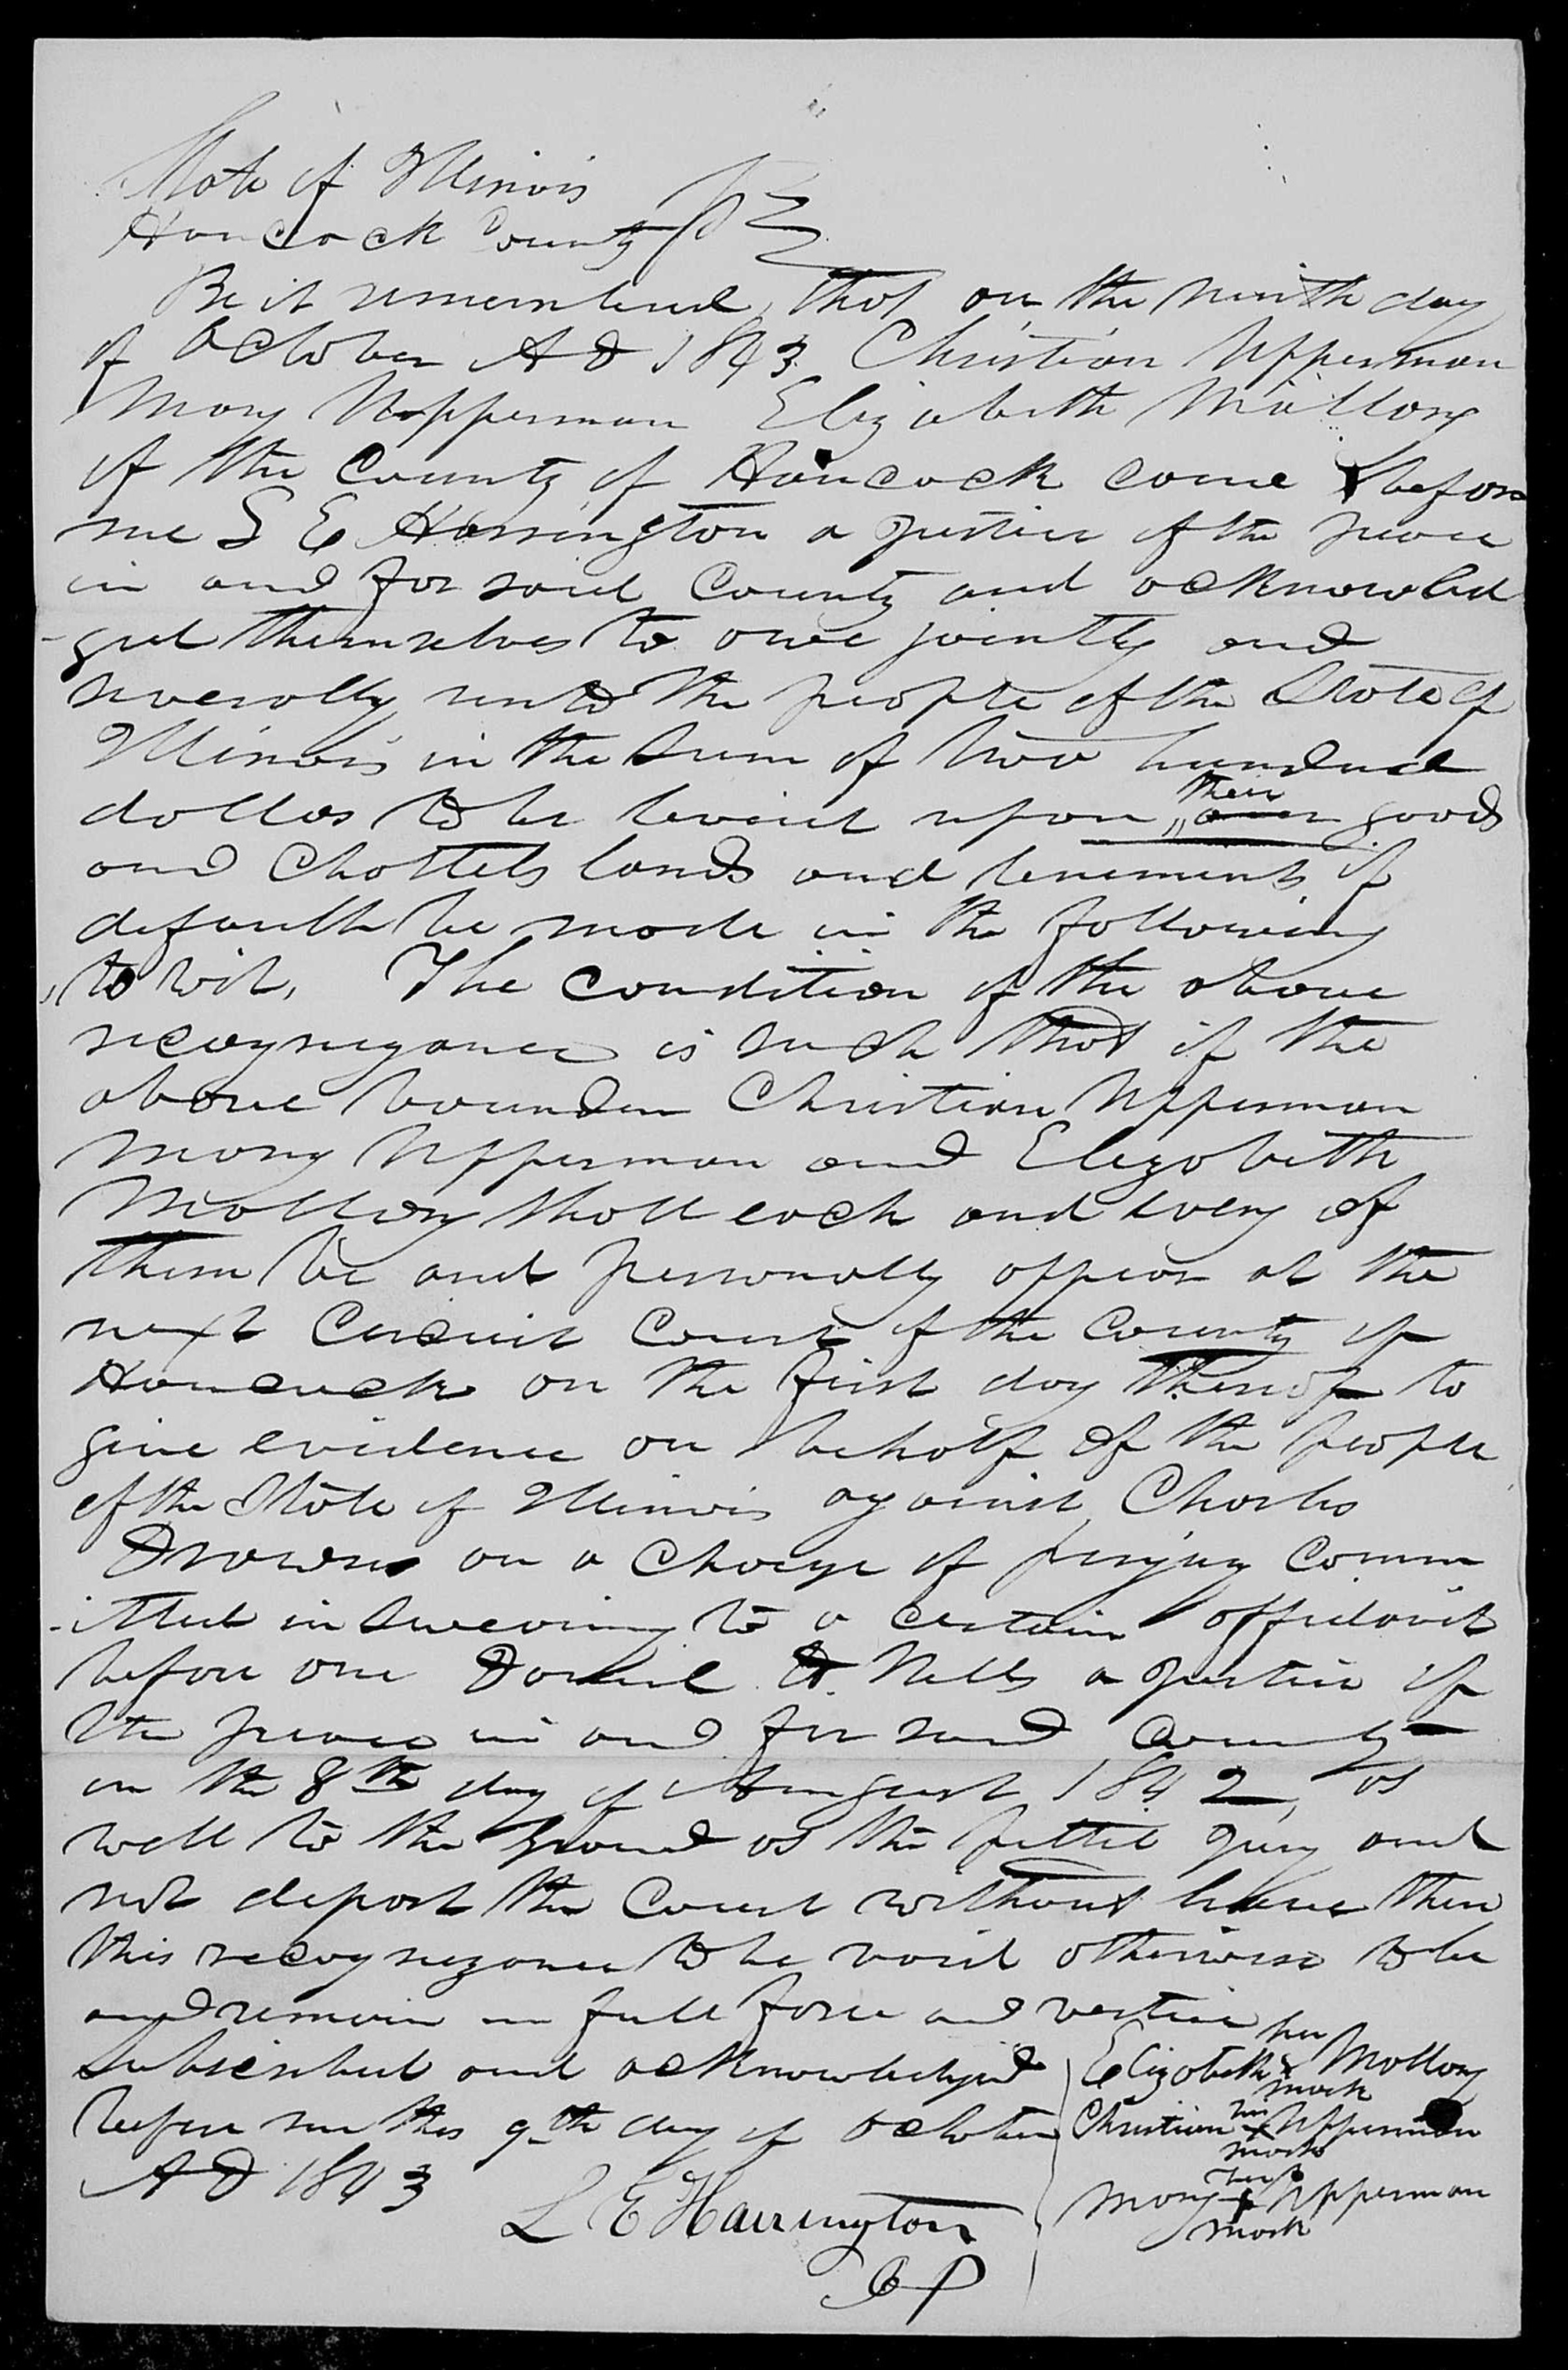 State of Illinois
Hancock County } ss
Be it remembered that on the ninth day
of October A D 1843 Christian Upperman
Mary Upperman Elizabeth Mallory
of the County of Hancock come before
me L E Harrington a justice of the peace
in and for said County and acknowled
-ged themselves to owe jointly and
severally unto the people of the State of
Illinois in the sum of two hundred
dollars to be levied upon their goods
and Chattels lands and tenements if
default be made in the following
to wit, The condition of the above
recognizance is such that if the
above bounden Christian Upperman
Mary Upperman and Elizabeth
Mallory shall each and every of
them be and personally appear at the
next Circuit Court of the County of
Hancock on the first day thereof to
give evidence on behalf of the people
of the State of Illinois against Charles
Drown on a charge of perjury comm
-itted in swearing to a certain affidavit
before one Daniel H Wells a justice of
the peace in and for said County
on the 8th day of August 1842, as
well to the grand as the pettit jury and
not depart the Court without leave then
this recognizance to be void otherwise to be
and remain in full force and vertue
Subscribed and acknowledged
before me this 9th day of October
A D 1843
L E Harrington
J P
her
Elizabeth x Mallory
mark
his
Christian x Upperman
mark
her
Mary x Upperman
mark